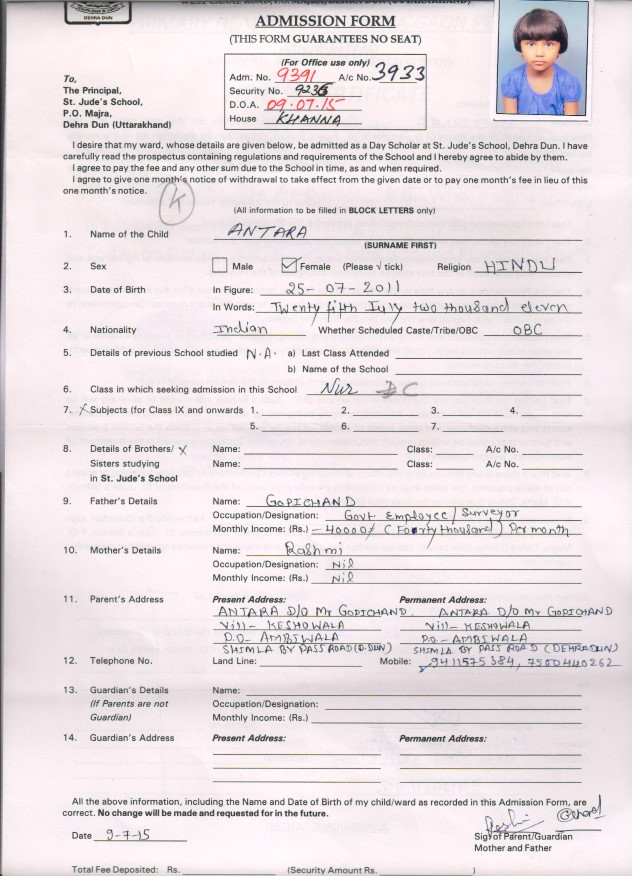 DEHRA DUN
ADMISSION FORM
(THIS FORM GUARANTEES NO SEAT)
(For Office use only)
Adm. No. 9391 A/c No. 3933
Security No. 9236
D.O.A. 09.07.15
House KHANNA
To,
The Principal,
St. Jude's School,
P.O. Majra,
Dehra Dun (Uttarakhand)
I desire that my ward, whose details are given below, be admitted as a Day Scholar at St. Jude's School, Dehra Dun. I have
carefully read the prospectus containing regulations and requirements of the School and I hereby agree to abide by them.
I agree to pay the fee and any other sum due to the School in time, as and when required.
I agree to give one month's notice of withdrawal to take effect from the given date or to pay one month's fee in lieu of this
one month's notice.
K
(All information to be filled in BLOCK LETTERS only)
1. Name of the Child ANTARA
(SURNAME FIRST)
2. Sex Male Female (Please √ tick) Religion HINDU
3. Date of Birth In Figure: 25-07-2011
In Words: Twenty fifth July two thousand eleven
4. Nationality Indian Whether Scheduled Caste/Tribe/OBC OBC
5. Details of previous School studied N.A. a) Last Class Attended
b) Name of the School
6. Class in which seeking admission in this School Nur C
7. X Subjects (for Class IX and onwards 1. 2. 3. 4.
5. 6. 7.
8. Details of Brothers/ X Name: Class: A/c No.
Sisters studying Name: Class: A/c No.
in St. Jude's School
9. Father's Details Name: GOPICHAND
Occupation/Designation: Govt Employee/Surveyor
Monthly Income: (Rs.) 40000/ (Fourty thousand) Per month
10. Mother's Details Name: Rashmi
Occupation/Designation: Nil
Monthly Income: (Rs.) Nil
11. Parent's Address Present Address: Permanent Address:
ANTARA D/O Mr GOPICHAND. ANTARA D/O Mr GOPICHAND
Vill- KESHOWALA Vill- KESHOWALA
P.O- AMBIWALA P.O- AMBIWALA
SHIMLA BY PASS ROAD (D.DUN) SHIMLA BY PASS ROAD (DEHRADUN)
12. Telephone No. Land Line: Mobile: 9411575384, 7500440262
13. Guardian's Details Name:
(If Parents are not Occupation/Designation:
Guardian) Monthly Income: (Rs.)
14. Guardian's Address Present Address: Permanent Address:
All the above information, including the Name and Date of Birth of my child/ward as recorded in this Admission Form, are
correct. No change will be made and requested for in the future.
Date 9-7-15 Sig. of Parent/Guardian
Mother and Father
Total Fee Deposited: Rs. (Security Amount Rs. )